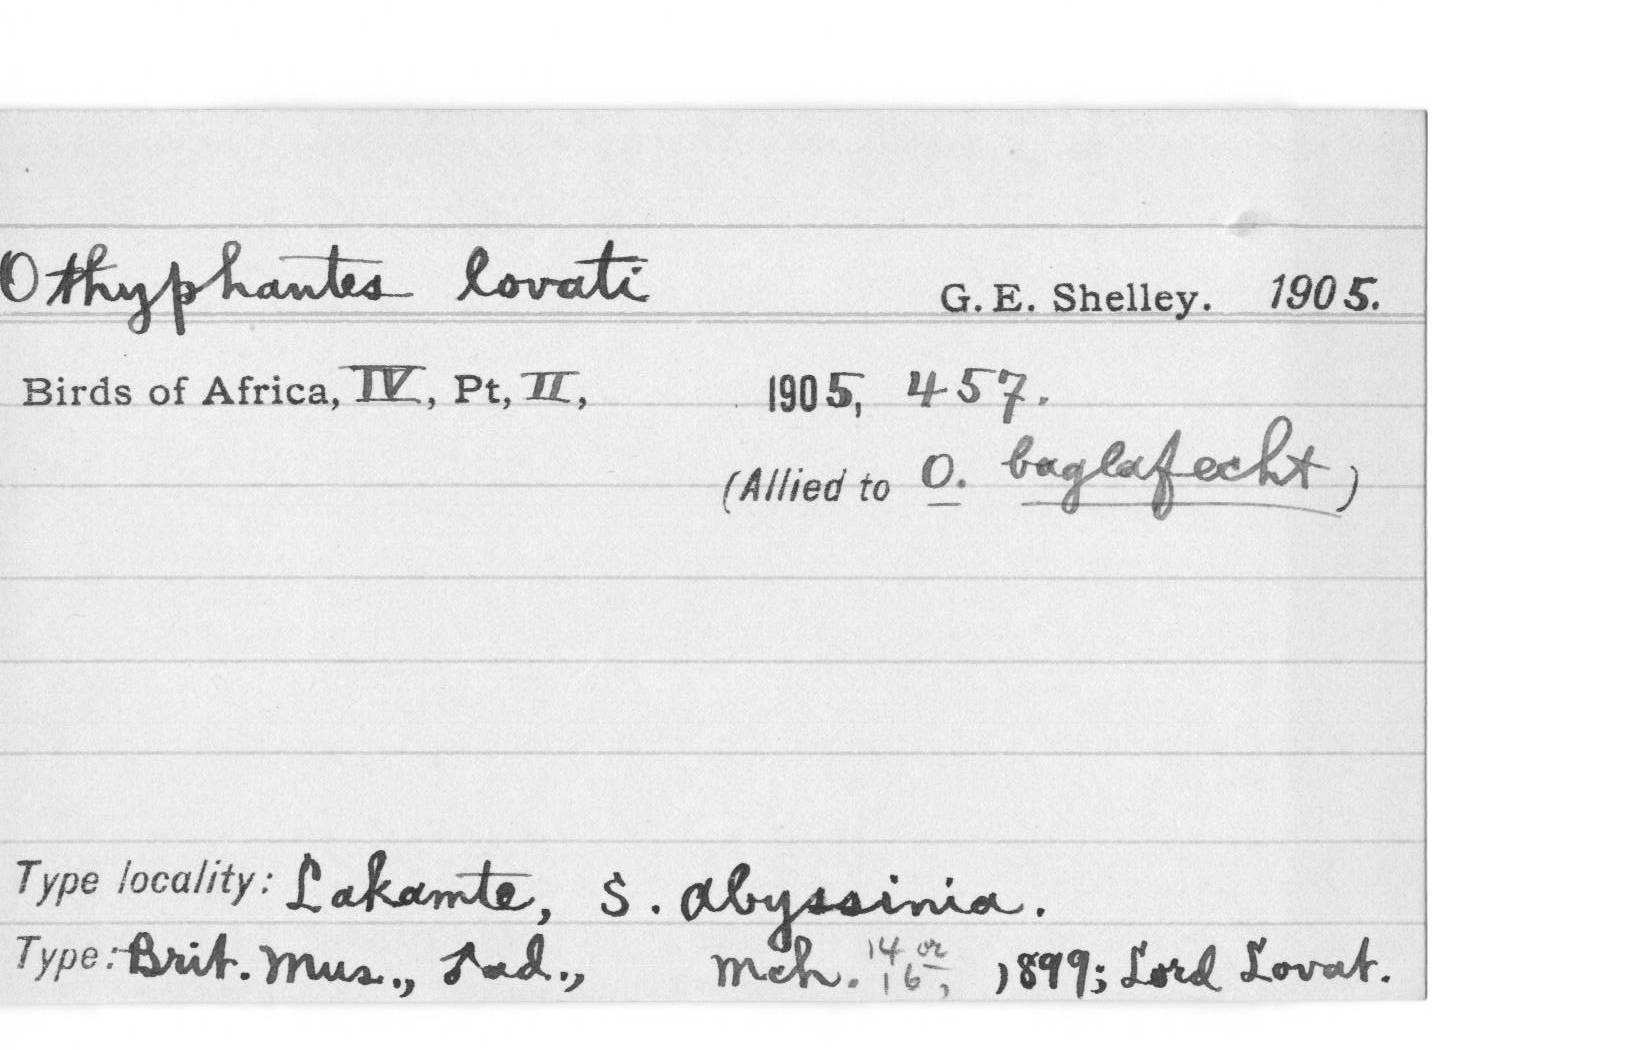 Othyphantes lovati G. E. Shelley. 1905.
Birds of Africa, IV, Pt, II, 1905, 457.
(Allied to O. baglafecht)
Type locality: Lakamte, S. Abyssinia.
Type: Brit. Mus., ♂ ad., Mch. 14 or 16, 1899; Lord Lovat.